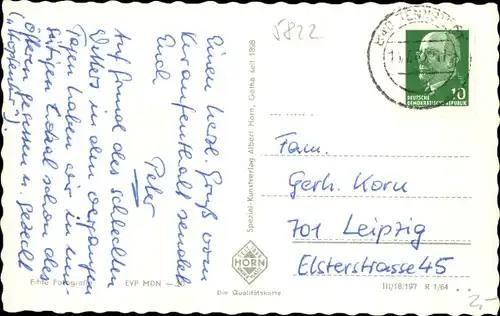 5822
BAD TENNSTEDT
DEUTSCHE
DEMOKRATISCHE REPUBLIK
10
Einen herzl. Gruß vom
Kuraufenthalt sendet
Euch
Peter
Auf Grund des schlechten
Wetters in den vergangenen
Tagen haben wir in
Lokal schon des
öfteren gesessen u. gezecht
Spezial-Kunstverlag Albert Horn, Gotha seit 1898
Fam.
Gerh. Korn
701 Leipzig
Elsterstrasse 45
Echte Fotografie
EVP MDN
HORN
Die Qualitätskarte
III/18/197 R 1/64
2,-